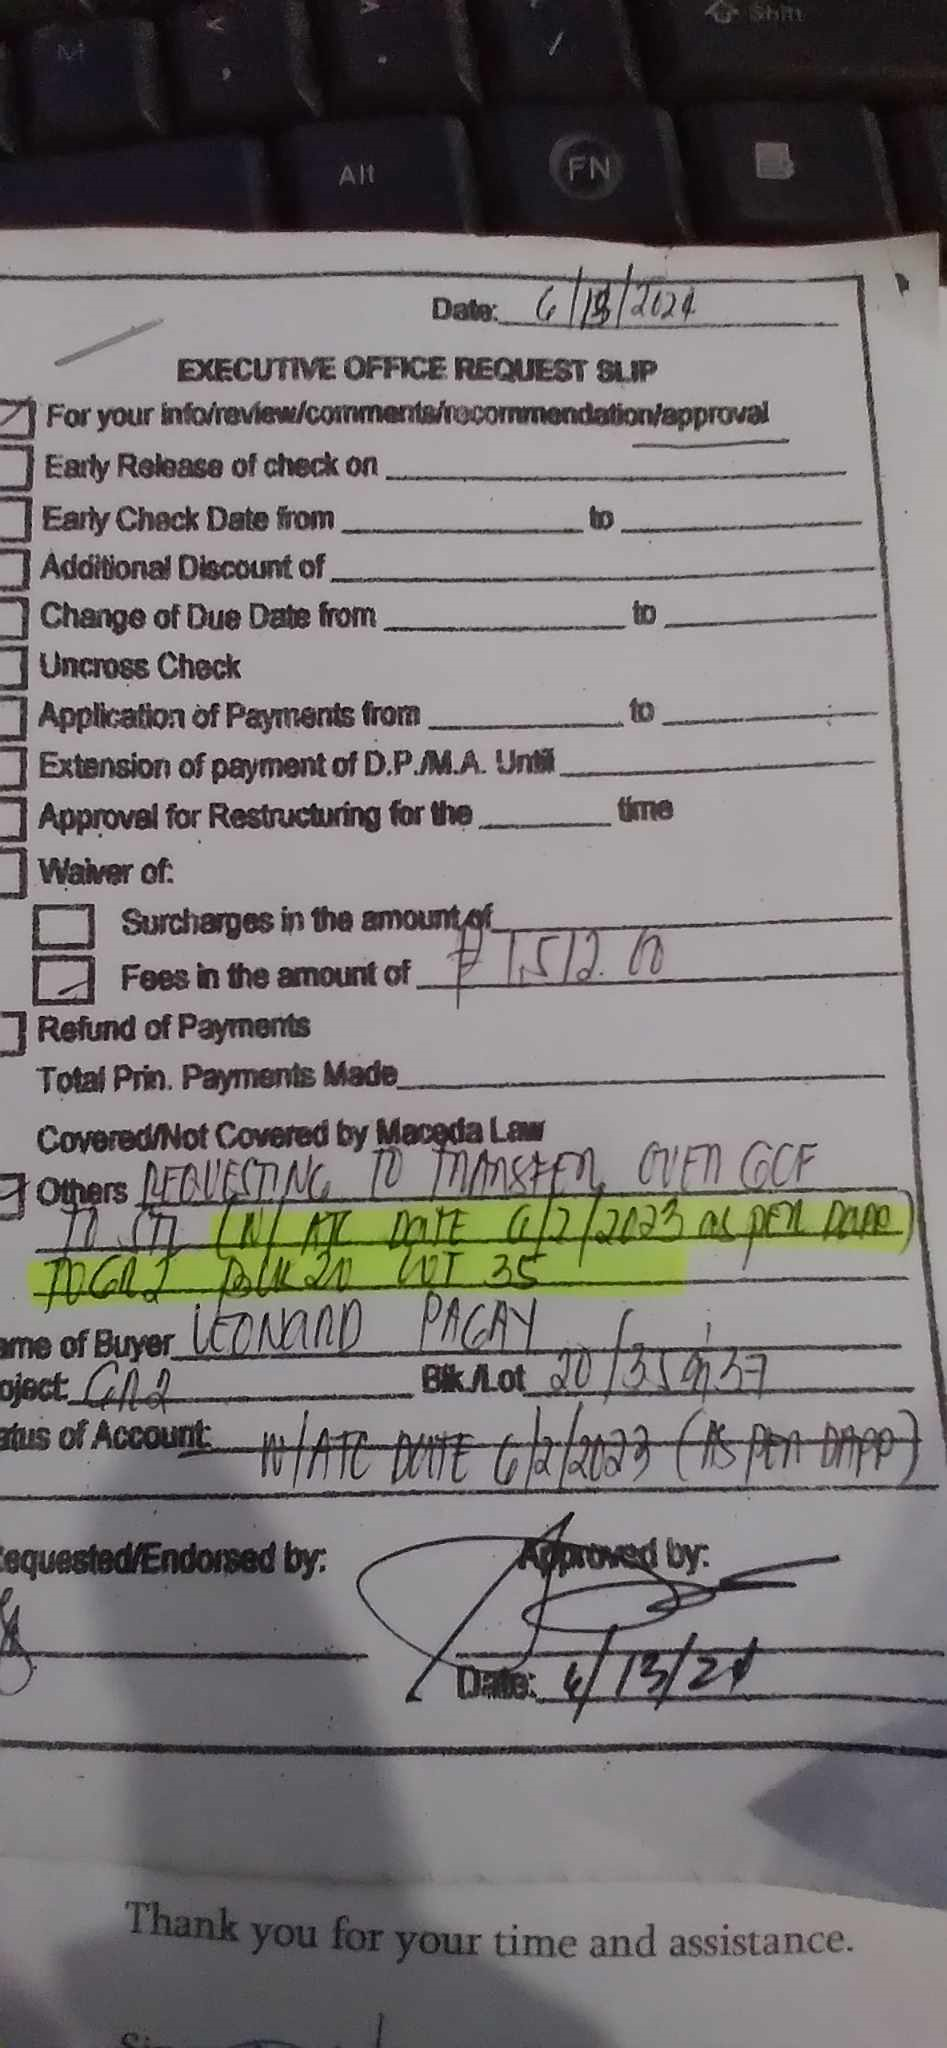 M < , > . / Shift
Alt FN
Date: 6/13/2024
EXECUTIVE OFFICE REQUEST SLIP
For your info/review/comments/recommendation/approval
Early Release of check on
Early Check Date from to
Additional Discount of
Change of Due Date from to
Uncross Check
Application of Payments from to
Extension of payment of D.P./M.A. Until
Approval for Restructuring for the time
Waiver of:
Surcharges in the amount of
Fees in the amount of ₱ 1,512.00
Refund of Payments
Total Prin. Payments Made
Covered/Not Covered by Maceda Law
Others REQUESTING TO TRANSFER OVER GCF
TO STL (W/ ATC DATE 6/2/2023 as PER DAPP)
TO GR2 BLK 20 LOT 35
ame of Buyer LEONARD PAGAY
oject: GR2 Blk./Lot 20/35937
atus of Account: W/ATC DATE 6/2/2023 (AS PER DAPP)
equested/Endorsed by: Approved by:
Date: 6/13/24
Thank you for your time and assistance.